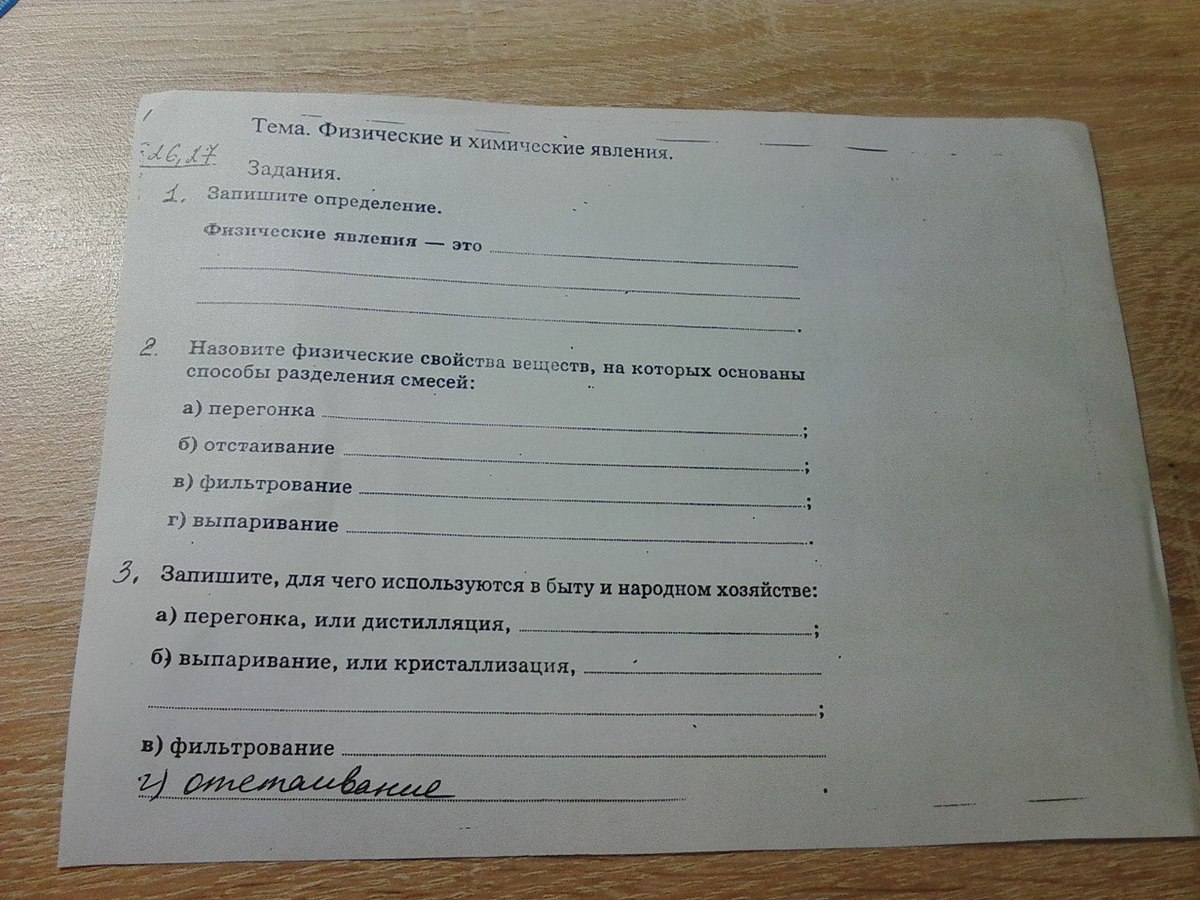 Тема. Физические и химические явления.
26, 27
Задания.
1. Запишите определение.
Физические явления — это
.
2. Назовите физические свойства веществ, на которых основаны
способы разделения смесей:
а) перегонка ;
б) отстаивание ;
в) фильтрование ;
г) выпаривание .
3. Запишите, для чего используются в быту и народном хозяйстве:
а) перегонка, или дистилляция, ;
б) выпаривание, или кристаллизация,
;
в) фильтрование
г) отстаивание .